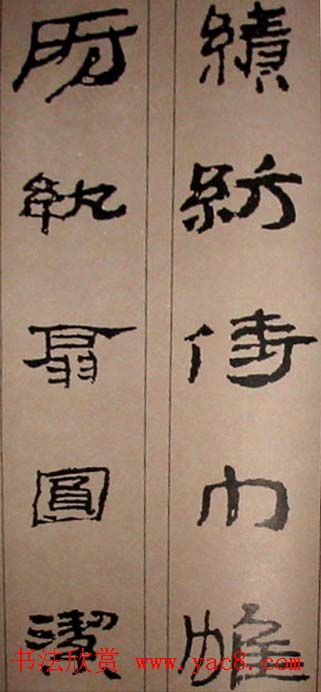 績紡侍巾帷
房紈扇圓潔
书法欣赏 www.yac8.com